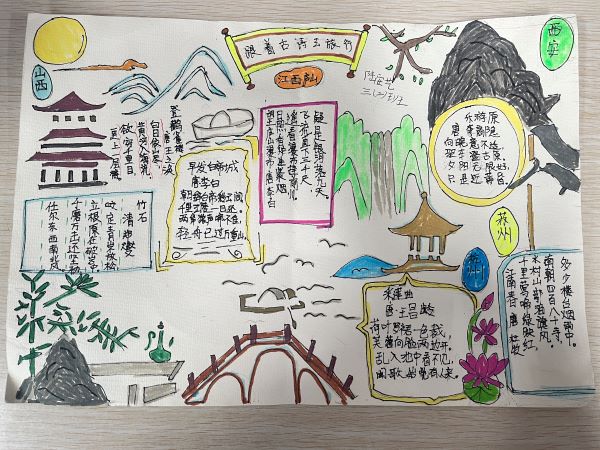 跟着古诗去旅行
江西庐山
山西
西安
三(2)班
登鹳雀楼
唐 王之涣
白日依山尽,
黄河入海流。
欲穷千里目,
更上一层楼。
早发白帝城
唐 李白
朝辞白帝彩云间
千里江陵一日还。
两岸猿声啼不住,
轻舟已过万重山。
望庐山瀑布 唐 李白
日照香炉生紫烟
遥看瀑布挂前川。
飞流直下三千尺,
疑是银河落九天。
乐游原
唐 李商隐
向晚意不适,
驱车登古原。
夕阳无限好,
只是近黄昏。
竹石
清 郑燮
咬定青山不放松
立根原在破岩中
千磨万击还坚劲
任尔东西南北风
苏州
杭州
采莲曲
唐·王昌龄
荷叶罗裙一色裁,
芙蓉向脸两边开。
乱入池中看不见,
闻歌始觉有人来。
江南春 唐 杜牧
千里莺啼绿映红,
水村山郭酒旗风。
南朝四百八十寺,
多少楼台烟雨中。